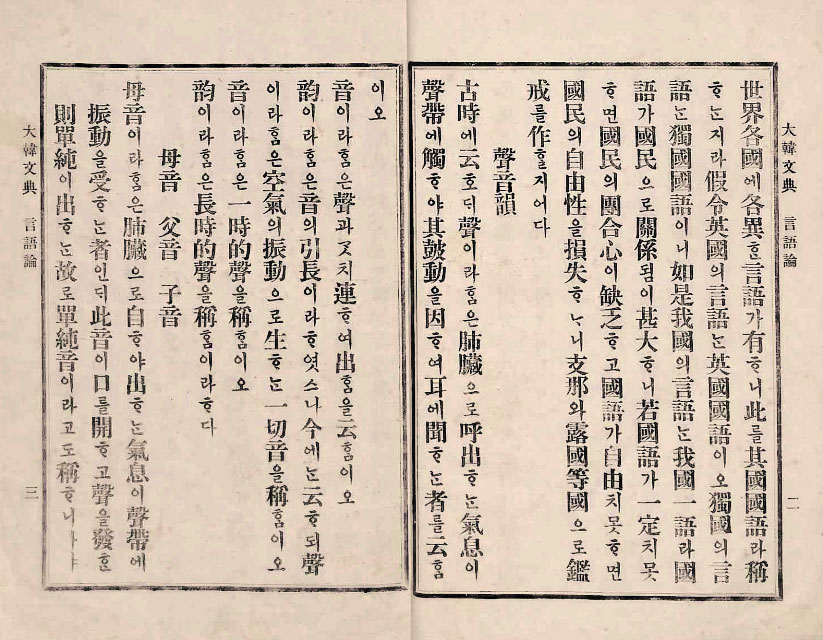 大韓文典 言語論
二
世界各國에各異ᄒᆞᆫ言語가有ᄒᆞ니此를其國國語라稱
ᄒᆞᄂᆞᆫ지라假令英國의言語ᄂᆞᆫ英國國語이오獨國의言
語ᄂᆞᆫ獨國國語이니如是我國의言語ᄂᆞᆫ我國一語라國
語가國民으로關係됨이甚大ᄒᆞ니若國語가一定치못
ᄒᆞ면國民의團合心이缺乏ᄒᆞ고國語가自由치못ᄒᆞ면
國民의自由性을損失ᄒᆞᄂᆞ니支那와露國等國으로鑑
戒를作ᄒᆞᆯ지어다
聲音韻
古時에云호ᄃᆡ聲이라ᄒᆞᆷ은肺臟으로呼出ᄒᆞᄂᆞᆫ氣息이
聲帶에觸ᄒᆞ야其鼓動을因ᄒᆞ여耳에聞ᄒᆞᄂᆞᆫ者를云ᄒᆞᆷ
이오
音이라ᄒᆞᆷ은聲과ᄀᆞᆺ치連ᄒᆞ여出ᄒᆞᆷ을云ᄒᆞᆷ이오
韵이라ᄒᆞᆷ은音의引長이라ᄒᆞ엿스나今에ᄂᆞᆫ云ᄒᆞ되聲
이라ᄒᆞᆷ은空氣의振動으로生ᄒᆞᄂᆞᆫ一切音을稱ᄒᆞᆷ이오
音이라ᄒᆞᆷ은一時的聲을稱ᄒᆞᆷ이오
韵이라ᄒᆞᆷ은長時的聲을稱ᄒᆞᆷ이라ᄒᆞ다
母音 父音 子音
母音이라ᄒᆞᆷ은肺臟으로自ᄒᆞ야出ᄒᆞᄂᆞᆫ氣息이聲帶에
振動을受ᄒᆞᄂᆞᆫ者인ᄃᆡ此音이口를開ᄒᆞ고聲을發ᄒᆞᆫ
則單純이出ᄒᆞᄂᆞᆫ故로單純音이라고도稱ᄒᆞ니
大韓文典 言語論
三